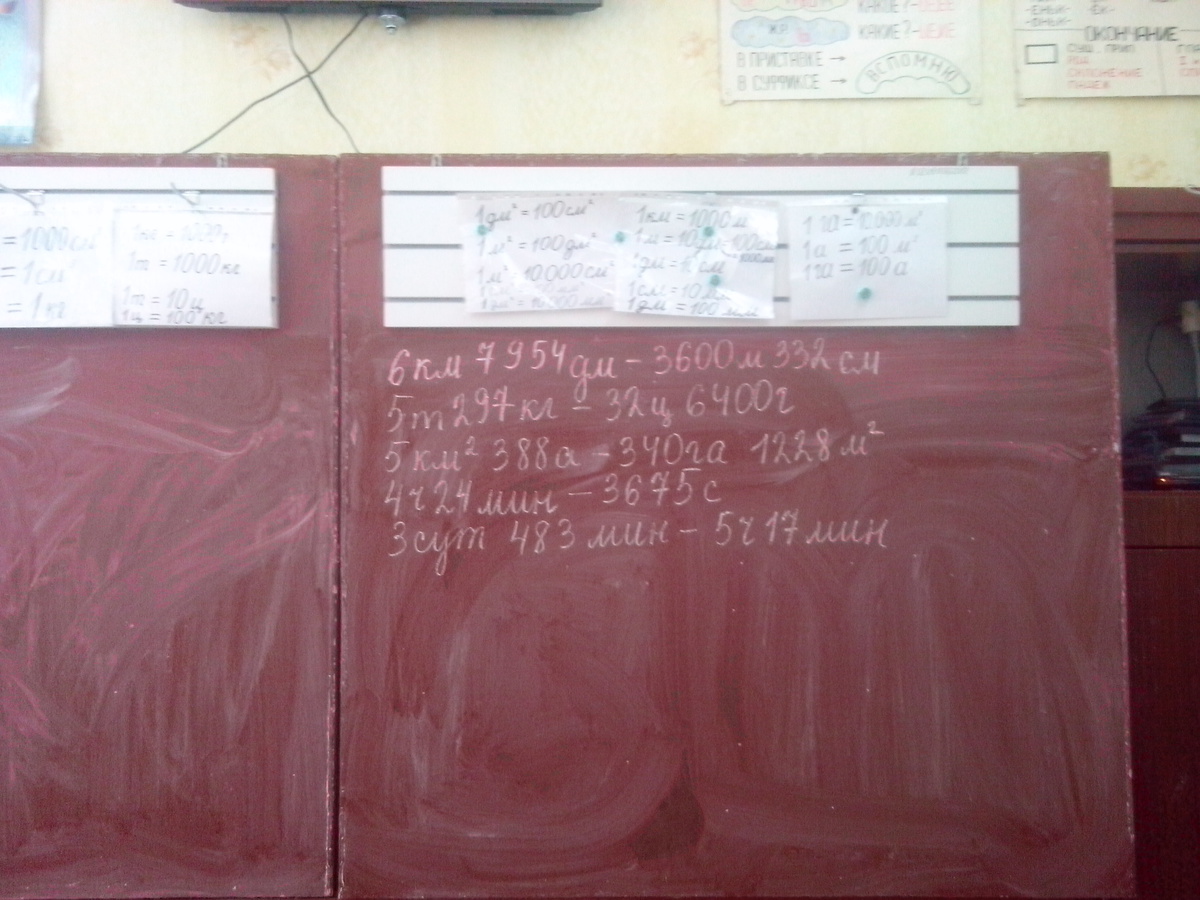 КАКОЕ?-ЦЕЕЕ
Ж.Р.
КАКИЕ?-ЦЕИЕ
В ПРИСТАВКЕ →
В СУФФИКСЕ →
ВСПОМНЮ
-ЕНЬК-
-ОНЬК-
-ЁК-
ОКОНЧАНИЕ
СУЩ. ПРИЛ
РОД
СКЛОНЕНИЕ
ПАДЕЖ
= 1000 см³
= 1 см³
= 1 кг
1 кг = 1000 г
1 т = 1000 кг
1 т = 10 ц
1 ц = 100 кг
1 дм² = 100 см²
1 м² = 100 дм²
1 м² = 10.000 см²
1 км = 1000 м
1 м = 10 дм = 100 см
= 1000 мм
1 дм = 10 см
1 см = 10 мм
1 дм = 100 мм
1 га = 10.000 м²
1 а = 100 м²
1 га = 100 а
6 км 7954 дм - 3600 м 332 см
5 т 297 кг - 32 ц 6400 г
5 км² 388 а - 340 га 1228 м²
4 ч 24 мин - 3675 с
3 сут 483 мин - 5 ч 17 мин